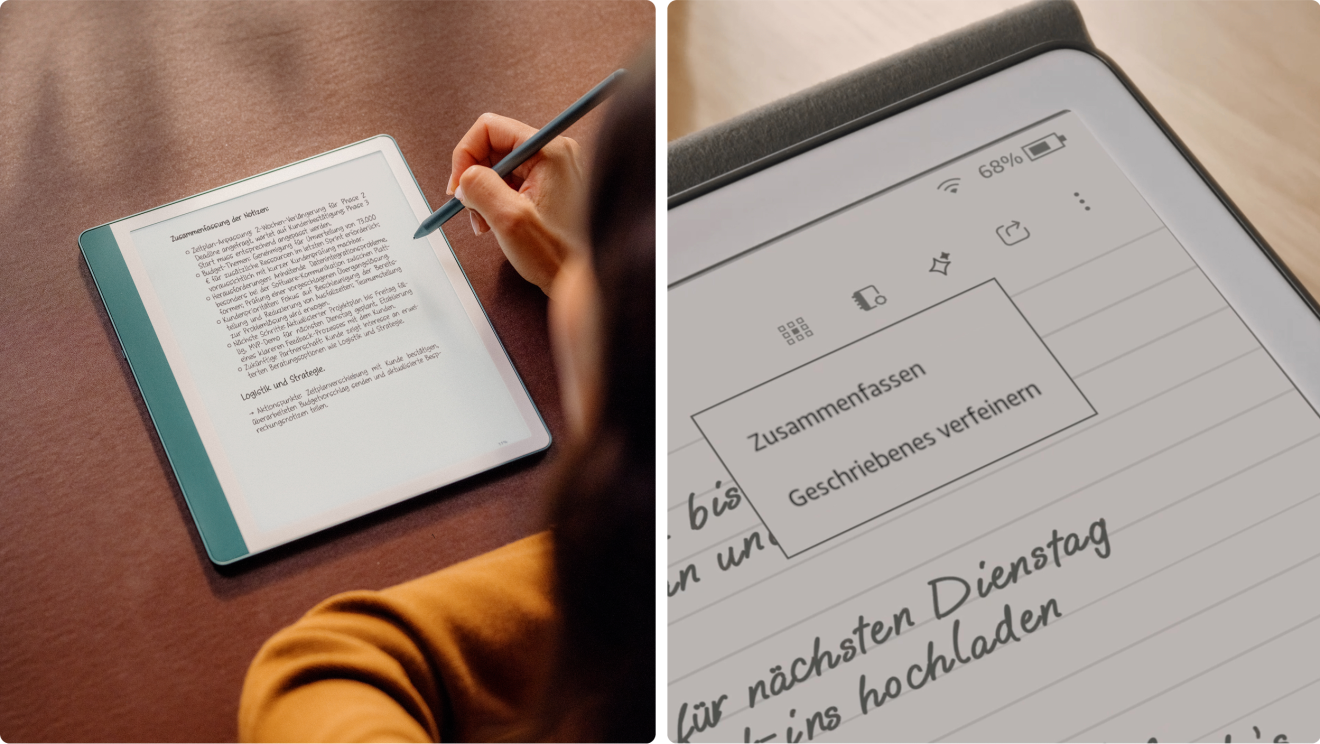 Zusammenfassung der Notizen:
○ Zeitplan-Anpassung: 2-Wochen-Verlängerung für Phase 2
Deadline angefragt, wartet auf Kundenbestätigung; Phase 3
Start muss entsprechend angepasst werden.
○ Budget-Themen: Genehmigung für Umverteilung von 73.000
€ für zusätzliche Ressourcen im letzten Sprint erforderlich;
voraussichtlich mit kurzer Kundenprüfung machbar.
○ Herausforderungen: Anhaltende Datenintegrationsprobleme,
besonders bei der Software-Kommunikation zwischen Platt-
formen; Prüfung einer vorgeschlagenen Übergangslösung.
○ Kundenprioritäten: Fokus auf Beschleunigung der Bereits-
tellung und Reduzierung von Ausfallzeiten; Teamumstellung
zur Problemlösung wird erwogen.
○ Nächste Schritte: Aktualisierter Projektplan bis Freitag fäl-
lig, MVR-Demo für nächsten Dienstag geplant, Etablierung
eines klareren Feedback-Prozesses mit dem Kunden.
○ Zukünftige Partnerschaft: Kunde zeigt Interesse an erwei-
terten Beratungsoptionen wie Logistik und Strategie.
Logistik und Strategie.
→ Aktionspunkte: Zeitplanverschiebung mit Kunde bestätigen,
überarbeiteten Budgetvorschlag senden und aktualisierte Besp-
rechungsnotizen teilen.
68%
Zusammenfassen
Geschriebenes verfeinern
bis
und
für nächsten Dienstag
hochladen